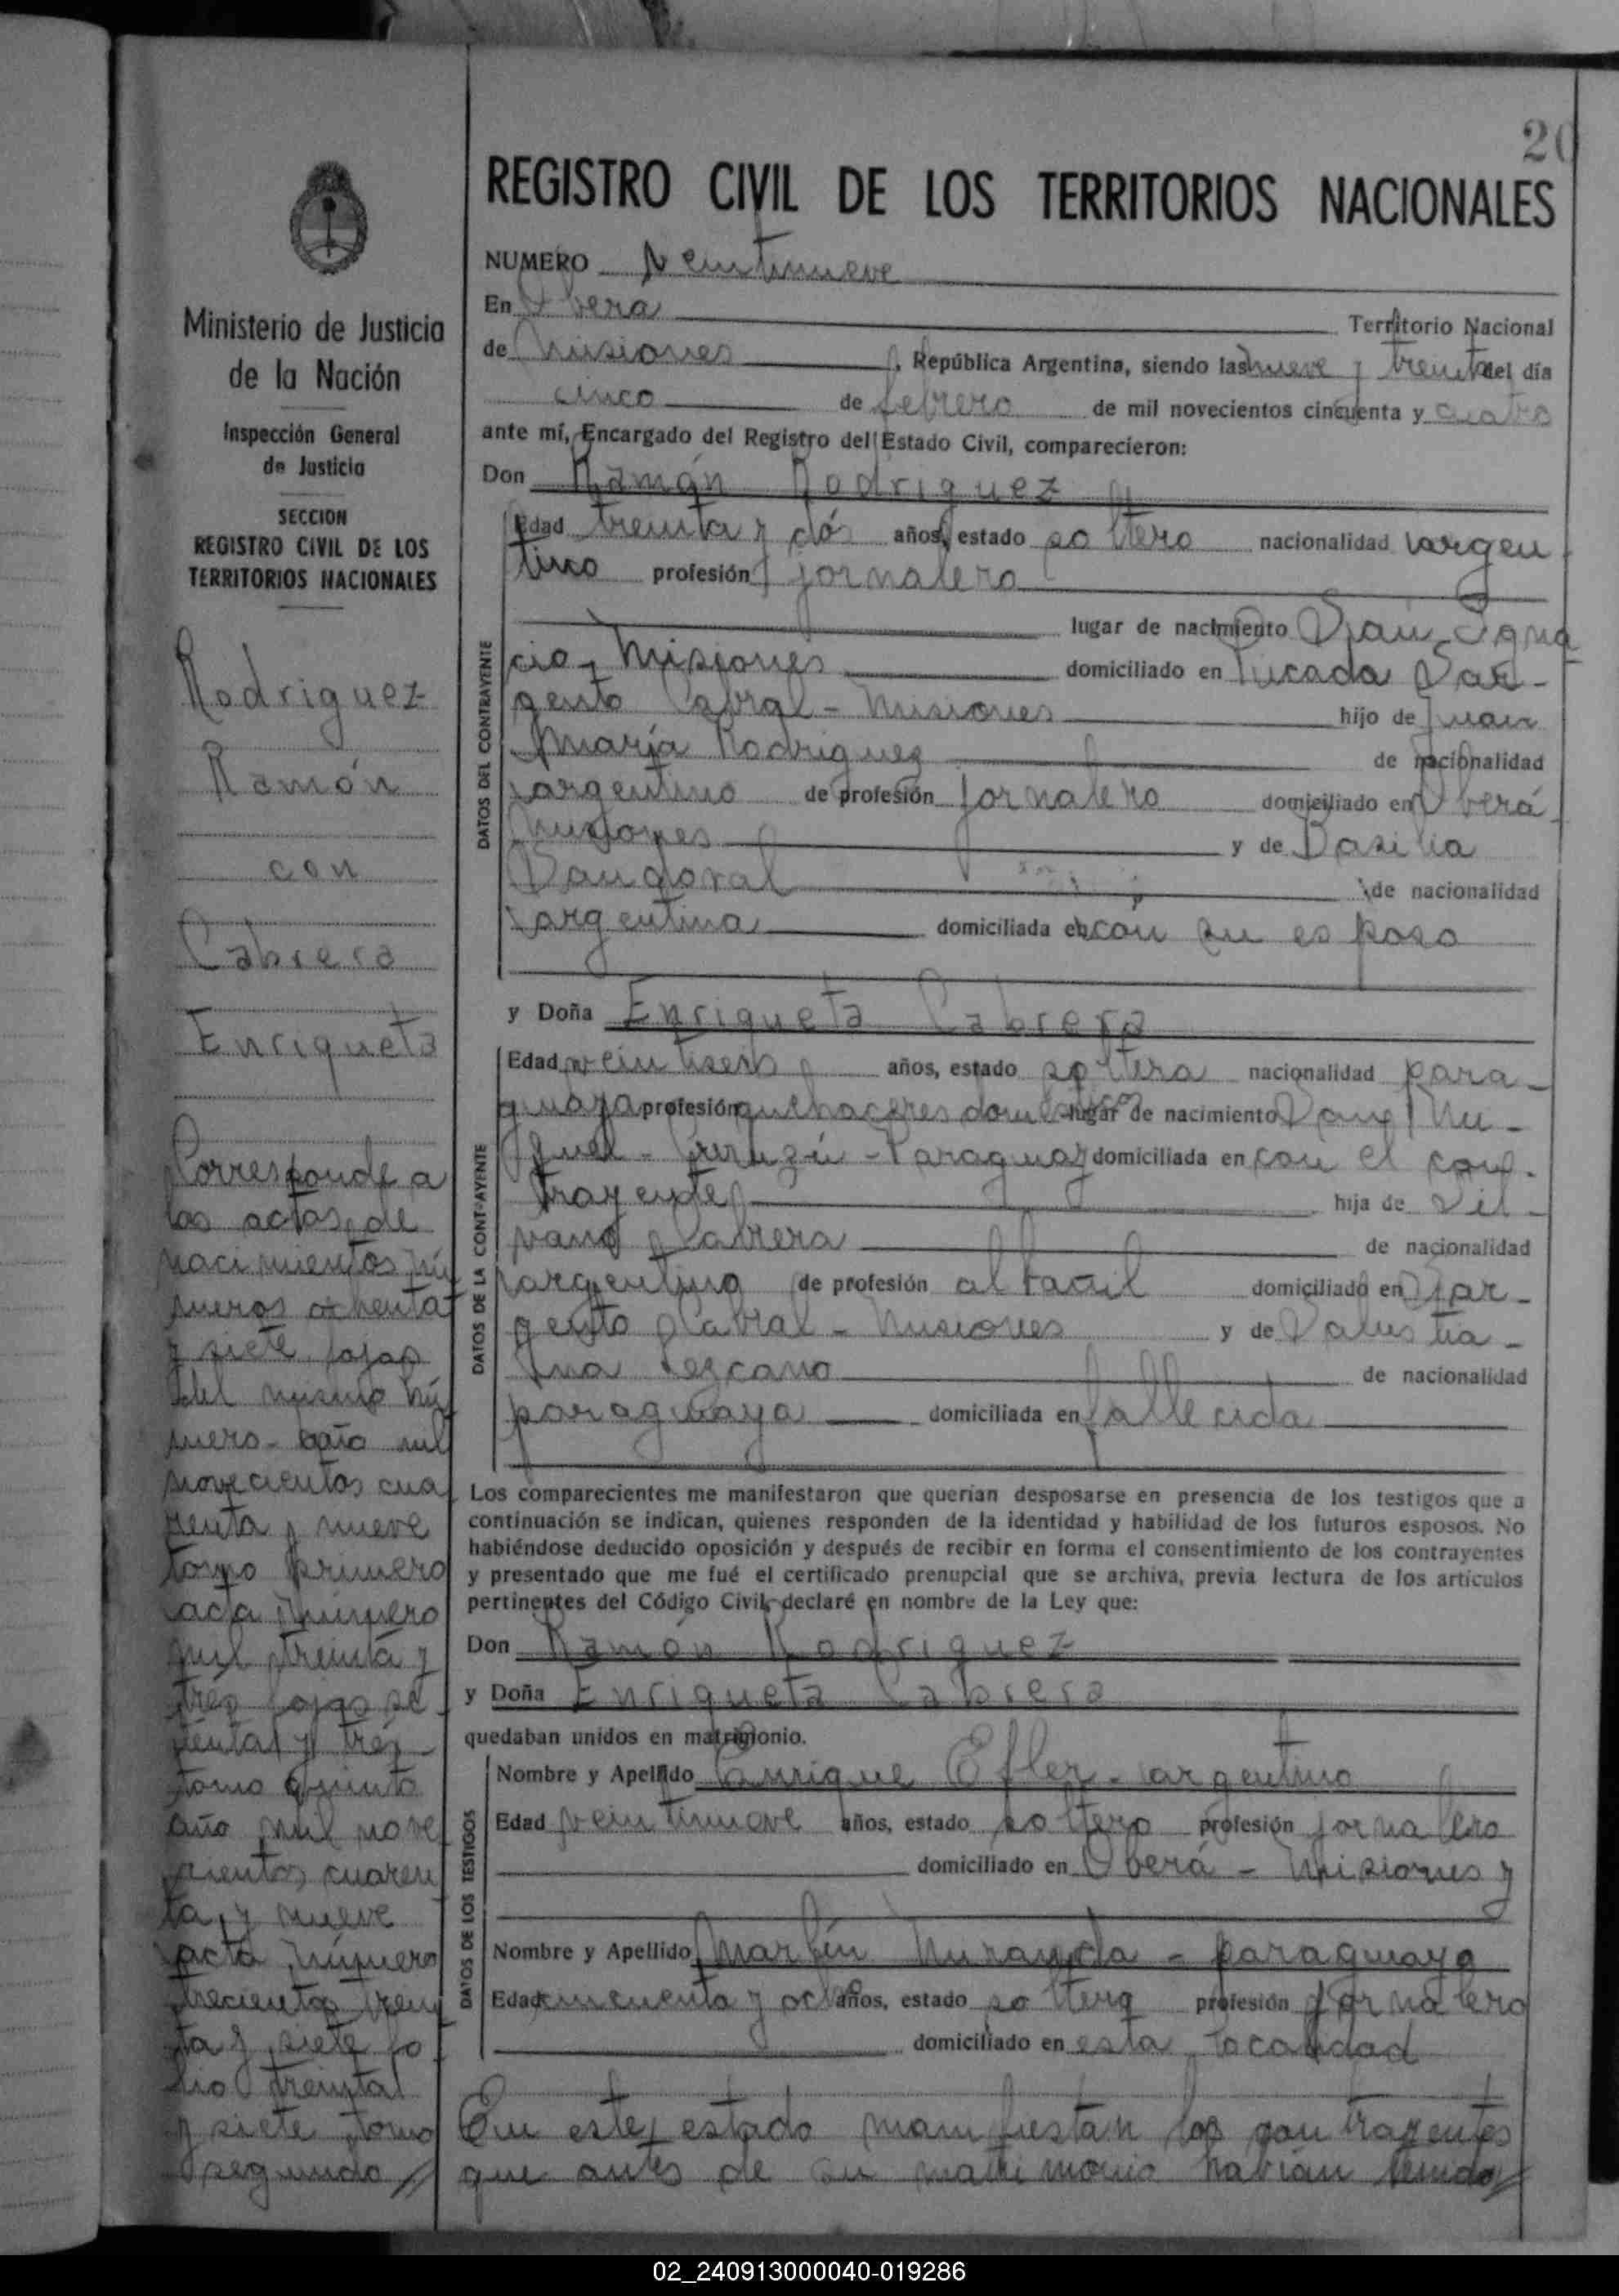 20
REGISTRO CIVIL DE LOS TERRITORIOS NACIONALES
Ministerio de Justicia
de la Nación
Inspección General
de Justicia
SECCION
REGISTRO CIVIL DE LOS
TERRITORIOS NACIONALES
Rodriguez
Ramón
con
Cabrera
Enriqueta
Corresponde a
las actas de
nacimientos nú
meros ochenta
y siete fojas
del mismo nú
mero - año mil
novecientos cua
renta y nueve
tomo primero
acta número
mil treinta y
tres fojas se
tenta y tres
tomo quinto
año mil nove
cientos cuaren
ta y nueve
acta número
trecientos trein
ta y siete fo
lio treinta
y siete tomo
segundo
NUMERO Veintinueve
En Obera Territorio Nacional
de Misiones, República Argentina, siendo las nueve y treinta del día
cinco de febrero de mil novecientos cincuenta y cuatro
ante mí, Encargado del Registro del Estado Civil, comparecieron:
Don Ramón Rodriguez
DATOS DEL CONTRAYENTE
Edad treinta y dós años, estado soltero nacionalidad argen
tino profesión jornalero
lugar de nacimiento San Igna
cio - Misiones domiciliado en Picada Sar-
gento Cabral - Misiones hijo de Juan
María Rodriguez de nacionalidad
argentino de profesión jornalero domiciliado en Oberá
Misiones y de Basilia
Sandoval de nacionalidad
argentina domiciliada en con su esposo
y Doña Enriqueta Cabrera
DATOS DE LA CONTRAYENTE
Edad veintiseis años, estado soltera nacionalidad para-
guaya profesión quehaceres domésticos lugar de nacimiento San Mi-
guel - - Paraguay domiciliada en con el con-
trayente hija de Sil-
vano Cabrera de nacionalidad
argentino de profesión albañil domiciliado en Sar-
gento Cabral - Misiones y de Salustia-
na Lezcano de nacionalidad
paraguaya domiciliada en fallecida
Los comparecientes me manifestaron que querían desposarse en presencia de los testigos que a
continuación se indican, quienes responden de la identidad y habilidad de los futuros esposos. No
habiéndose deducido oposición y después de recibir en forma el consentimiento de los contrayentes
y presentado que me fué el certificado prenupcial que se archiva, previa lectura de los artículos
pertinentes del Código Civil, declaré en nombre de la Ley que:
Don Ramón Rodriguez
y Doña Enriqueta Cabrera
quedaban unidos en matrimonio.
DATOS DE LOS TESTIGOS
Nombre y Apellido Enrique Efler - argentino
Edad veintinueve años, estado soltero profesión jornalero
domiciliado en Oberá - Misiones y
Nombre y Apellido Martín Miranda - paraguayo
Edad cincuenta y ocho años, estado soltero profesión jornalero
domiciliado en esta localidad
En este estado manifiestan los contrayentes
que antes de su matrimonio habían tenido
02_240913000040-019286